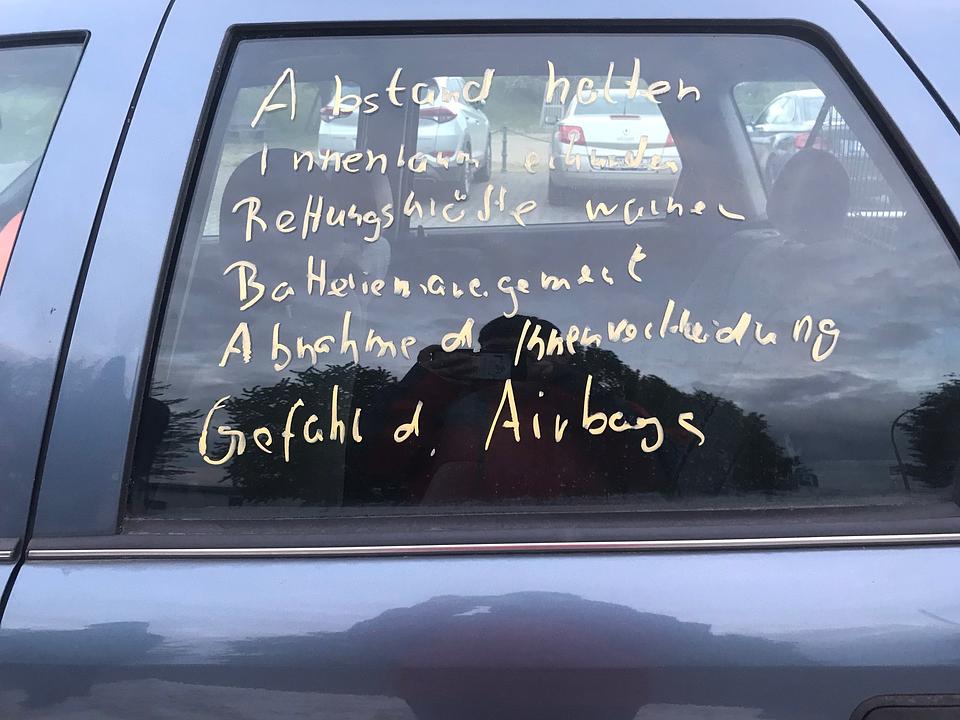 Abstand halten
Innenraum erkunden
Rettungskräfte warnen
Batteriemanagement
Abnahme d. Innenverkleidung
Gefahr d. Airbags